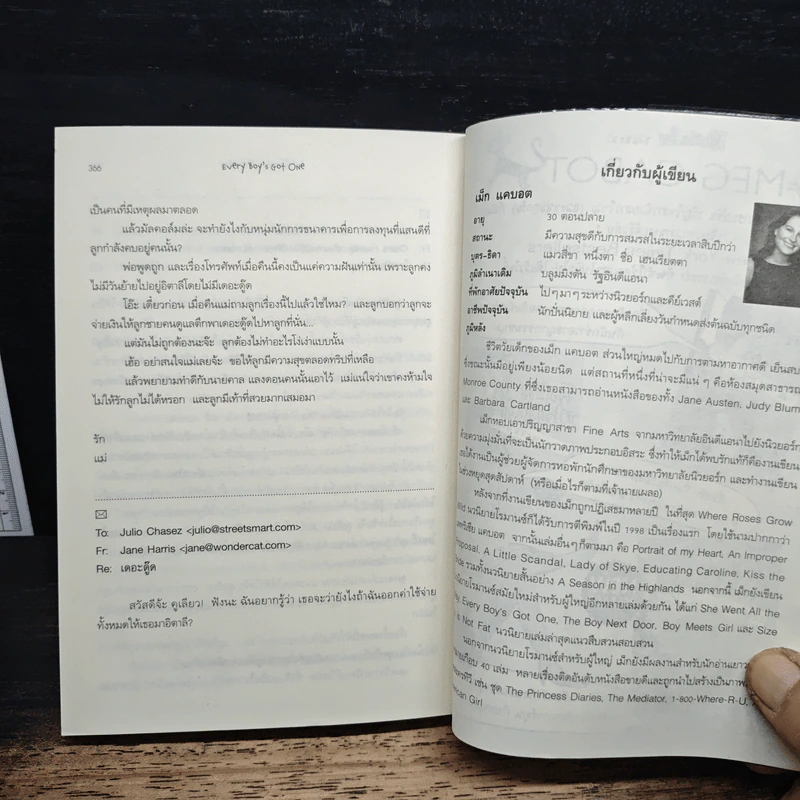 366
Every Boy's Got One
เป็นคนที่มีเหตุผลมาตลอด
แล้วมัลคอล์มล่ะ จะทำยังไงกับหนุ่มนักการธนาคารเพื่อการลงทุนที่แสนดีที่
ลูกกำลังคบอยู่คนนั้น?
พ่อพูดถูก และเรื่องโทรศัพท์เมื่อคืนนี้คงเป็นแค่ความฝันเท่านั้น เพราะลูกคง
ไม่มีวันย้ายไปอยู่อิตาลีโดยไม่มีเดอะตู๊ด
โอ๊ะ เดี๋ยวก่อน เมื่อคืนแม่ถามลูกเรื่องนี้ไปแล้วใช่ไหม? และลูกบอกว่าลูกจะ
จ่ายเงินให้ลูกชายคนดูแลตึกพาเดอะตู๊ดไปหาลูกที่นั่น...
แต่มันไม่ถูกต้องนะจ๊ะ ลูกต้องไม่ทำอะไรโง่เง่าแบบนั้น
เฮ้อ อย่าสนใจแม่เลยจ้ะ ขอให้ลูกมีความสุขตลอดทริปที่เหลือ
แล้วพยายามทำดีกับนายคาล แลงดอนคนนั้นเอาไว้ แม่แน่ใจว่าเขาคงห้ามใจ
ไม่ให้รักลูกไม่ได้หรอก และลูกมีเท้าที่สวยมากเสมอมา
รัก
แม่
To: Julio Chasez <julio@streetsmart.com>
Fr: Jane Harris <jane@wondercat.com>
Re: เดอะตู๊ด
สวัสดีจ้ะ คูเลียว! ฟังนะ ฉันอยากรู้ว่า เธอจะว่ายังไงถ้าฉันออกค่าใช้จ่าย
ทั้งหมดให้เธอมาอิตาลี?
เกี่ยวกับผู้เขียน
เม็ก แคบอต
อายุ 30 ตอนปลาย
สถานะ มีความสุขกับการสมรสในระยะเวลาสิบปีกว่า
บุตร-ธิดา แมวสีขา หนึ่งตา ชื่อ เฮนเรียตตา
ภูมิลำเนาเดิม บลูมมิงตัน รัฐอินดีแอนา
ที่พักอาศัยปัจจุบัน ไปๆมาๆระหว่างนิวยอร์กและคีย์เวสต์
อาชีพปัจจุบัน นักปั่นนิยาย และผู้หลีกเลี่ยงวันกำหนดส่งต้นฉบับทุกชนิด
ภูมิหลัง
ชีวิตวัยเด็กของเม็ก แคบอต ส่วนใหญ่หมดไปกับการตามหาอากาศดี เย็นสบ
ซึ่งขณะนั้นมีอยู่เพียงน้อยนิด แต่สถานที่หนึ่งที่น่าจะมีแน่ ๆ คือห้องสมุดสาธารณ
Monroe County ที่ซึ่งเธอสามารถอ่านหนังสือของทั้ง Jane Austen, Judy Blum
และ Barbara Cartland
เม็กหอบเอาปริญญาสาขา Fine Arts จากมหาวิทยาลัยอินดีแอนาไปยังนิวยอร์ก
ด้วยความมุ่งมั่นที่จะเป็นนักวาดภาพประกอบอิสระ ซึ่งทำให้เม็กได้พบรักแท้ก็คืองานเขียน
เธอได้งานเป็นผู้ช่วยผู้จัดการหอพักนักศึกษาของมหาวิทยาลัยนิวยอร์ก และทำงานเขียน
ในช่วงหยุดสุดสัปดาห์ (หรือเมื่อไรก็ตามที่เจ้านายเผลอ)
หลังจากที่งานเขียนของเม็กถูกปฏิเสธมาหลายปี ในที่สุด Where Roses Grow
Wild นวนิยายโรมานซ์ก็ได้รับการตีพิมพ์ในปี 1998 เป็นเรื่องแรก โดยใช้นามปากกาว่า
แพทริเซีย แคบอต จากนั้นเล่มอื่นๆก็ตามมา คือ Portrait of my Heart, An Improper
Proposal, A Little Scandal, Lady of Skye, Educating Caroline, Kiss the
รวมทั้งนวนิยายสั้นอย่าง A Season in the Highlands นอกจากนี้ เม็กยังเขียน
นวนิยายโรมานซ์สมัยใหม่สำหรับผู้ใหญ่อีกหลายเล่มด้วยกัน ได้แก่ She Went All the
Every Boy's Got One, The Boy Next Door, Boy Meets Girl และ Size
is Not Fat นวนิยายเล่มล่าสุดแนวสืบสวนสอบสวน
นอกจากนวนิยายโรมานซ์สำหรับผู้ใหญ่ เม็กยังมีผลงานสำหรับนักอ่านเยาว
เกือบ 40 เล่ม หลายเรื่องติดอันดับหนังสือขายดีและถูกนำไปสร้างเป็นภาพ
เช่น ชุด The Princess Diaries, The Mediator, 1-800-Where-R-U,
Girl